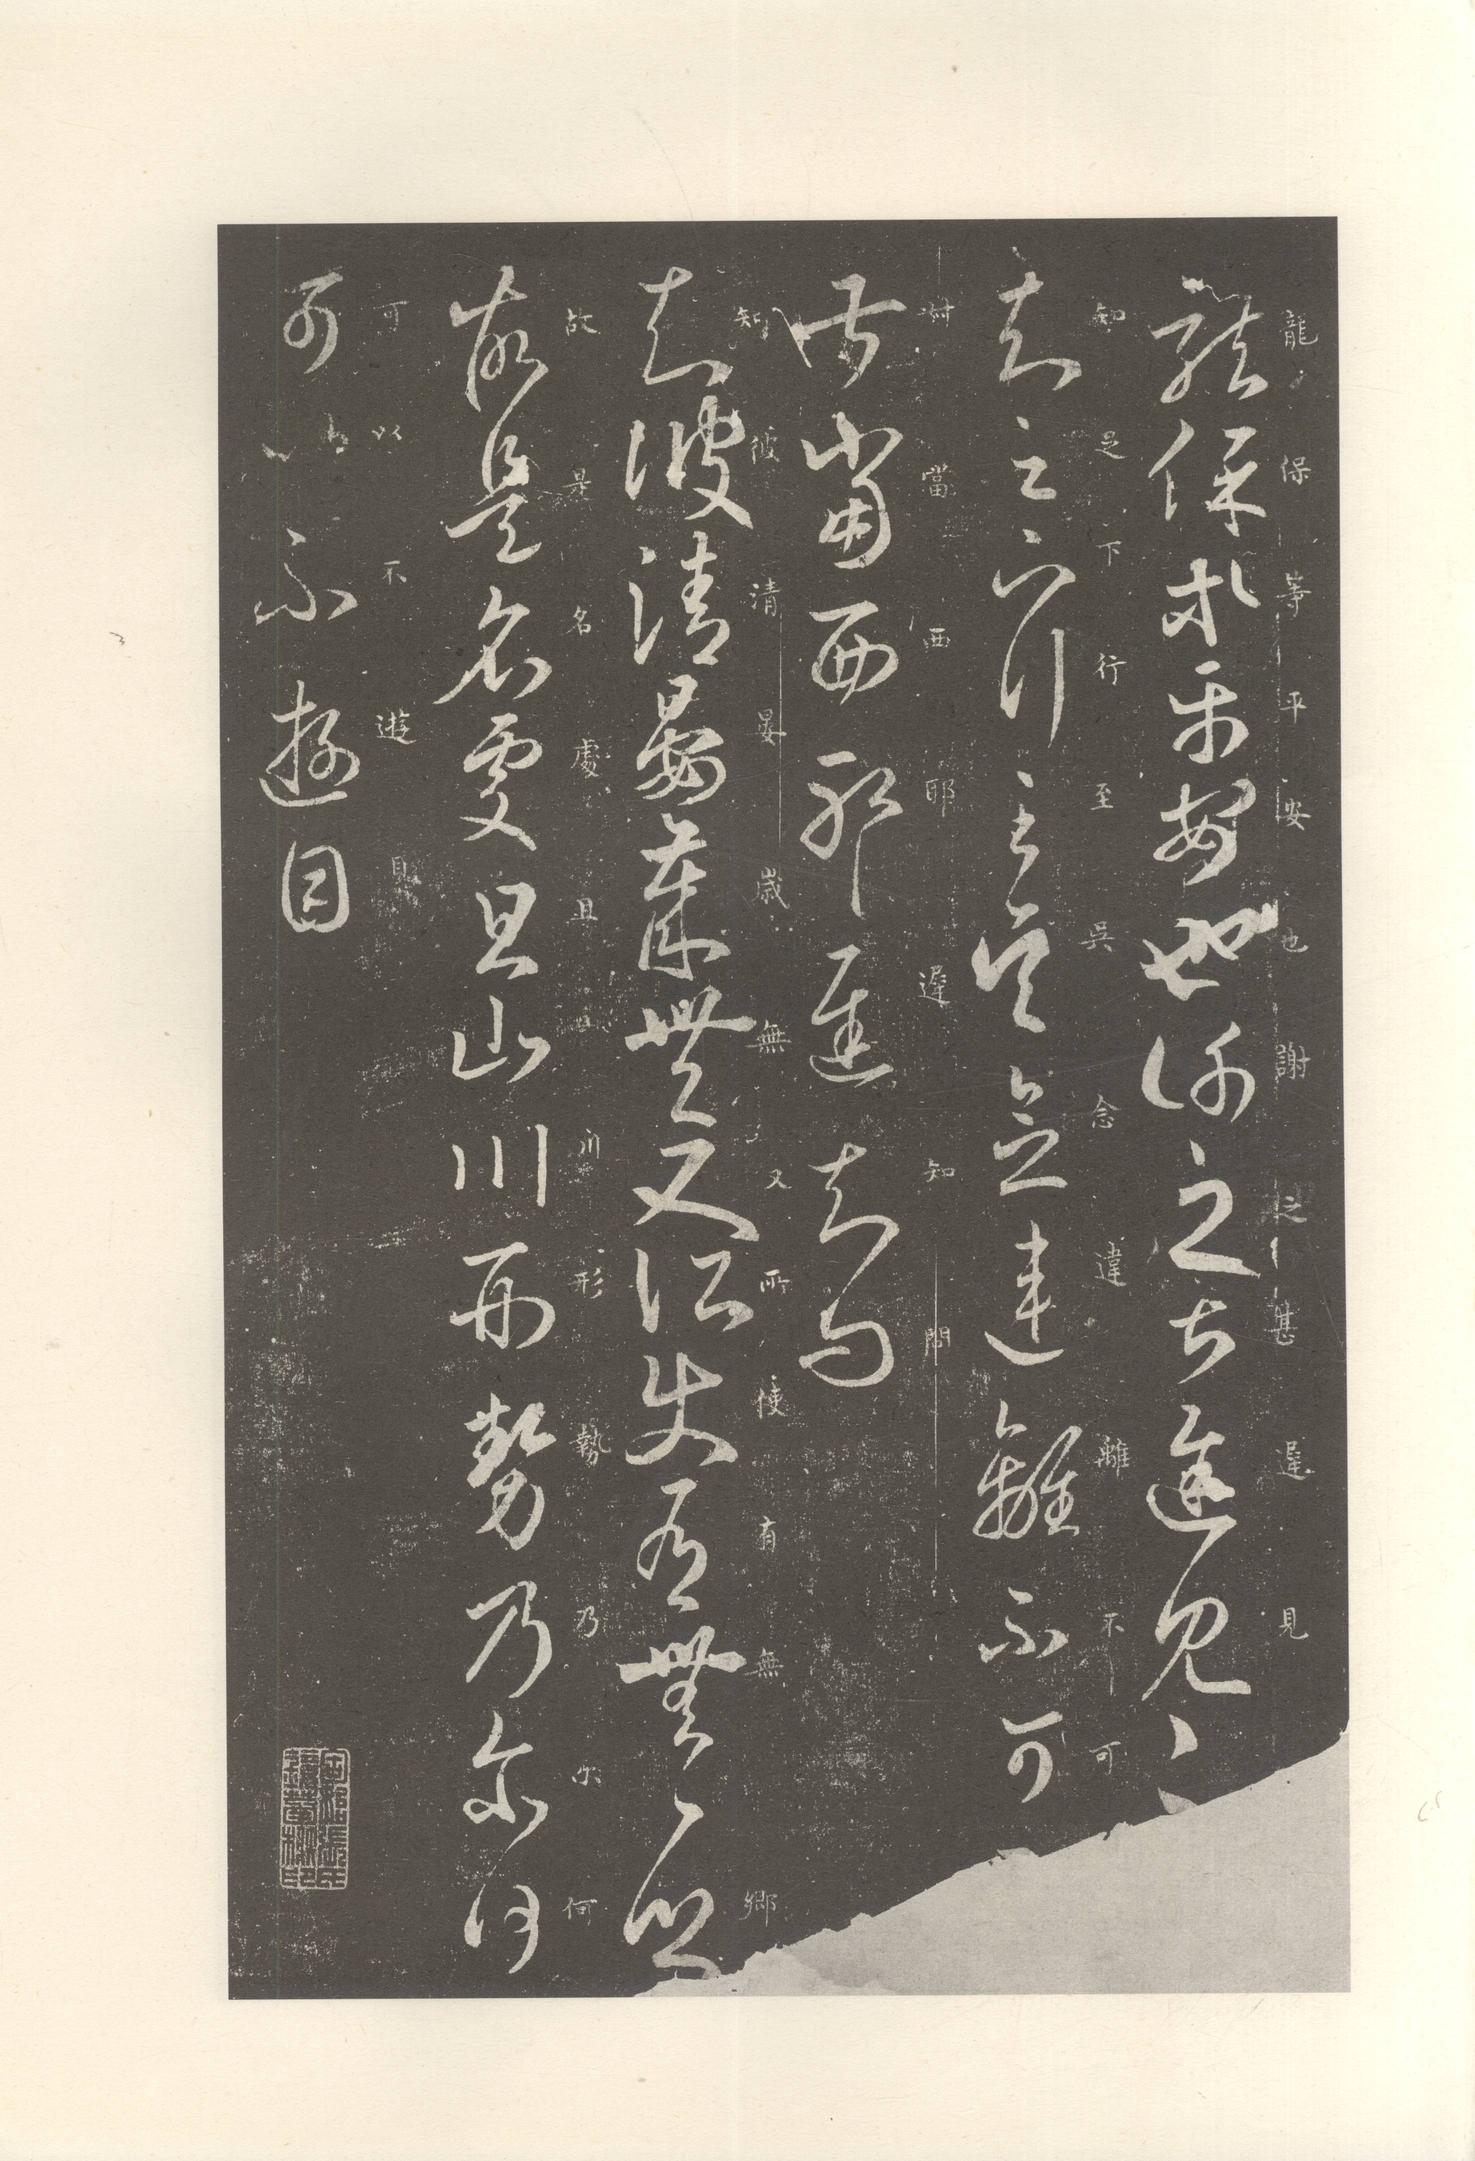 龍保等平安也謝之甚遲見
龍保等平安也謝之甚遲見
知足下行至吳念違離不可
知足下行至吳念違離不可
叔當西耶遲知問
叔當西耶遲知問
知彼清晏歲無又所使有無鄉
知彼清晏歲豐又所使有無一鄉
故是名處且川形勢乃尔何
故是名處且山川形勢乃尔何
可以不遊目
可以不遊目